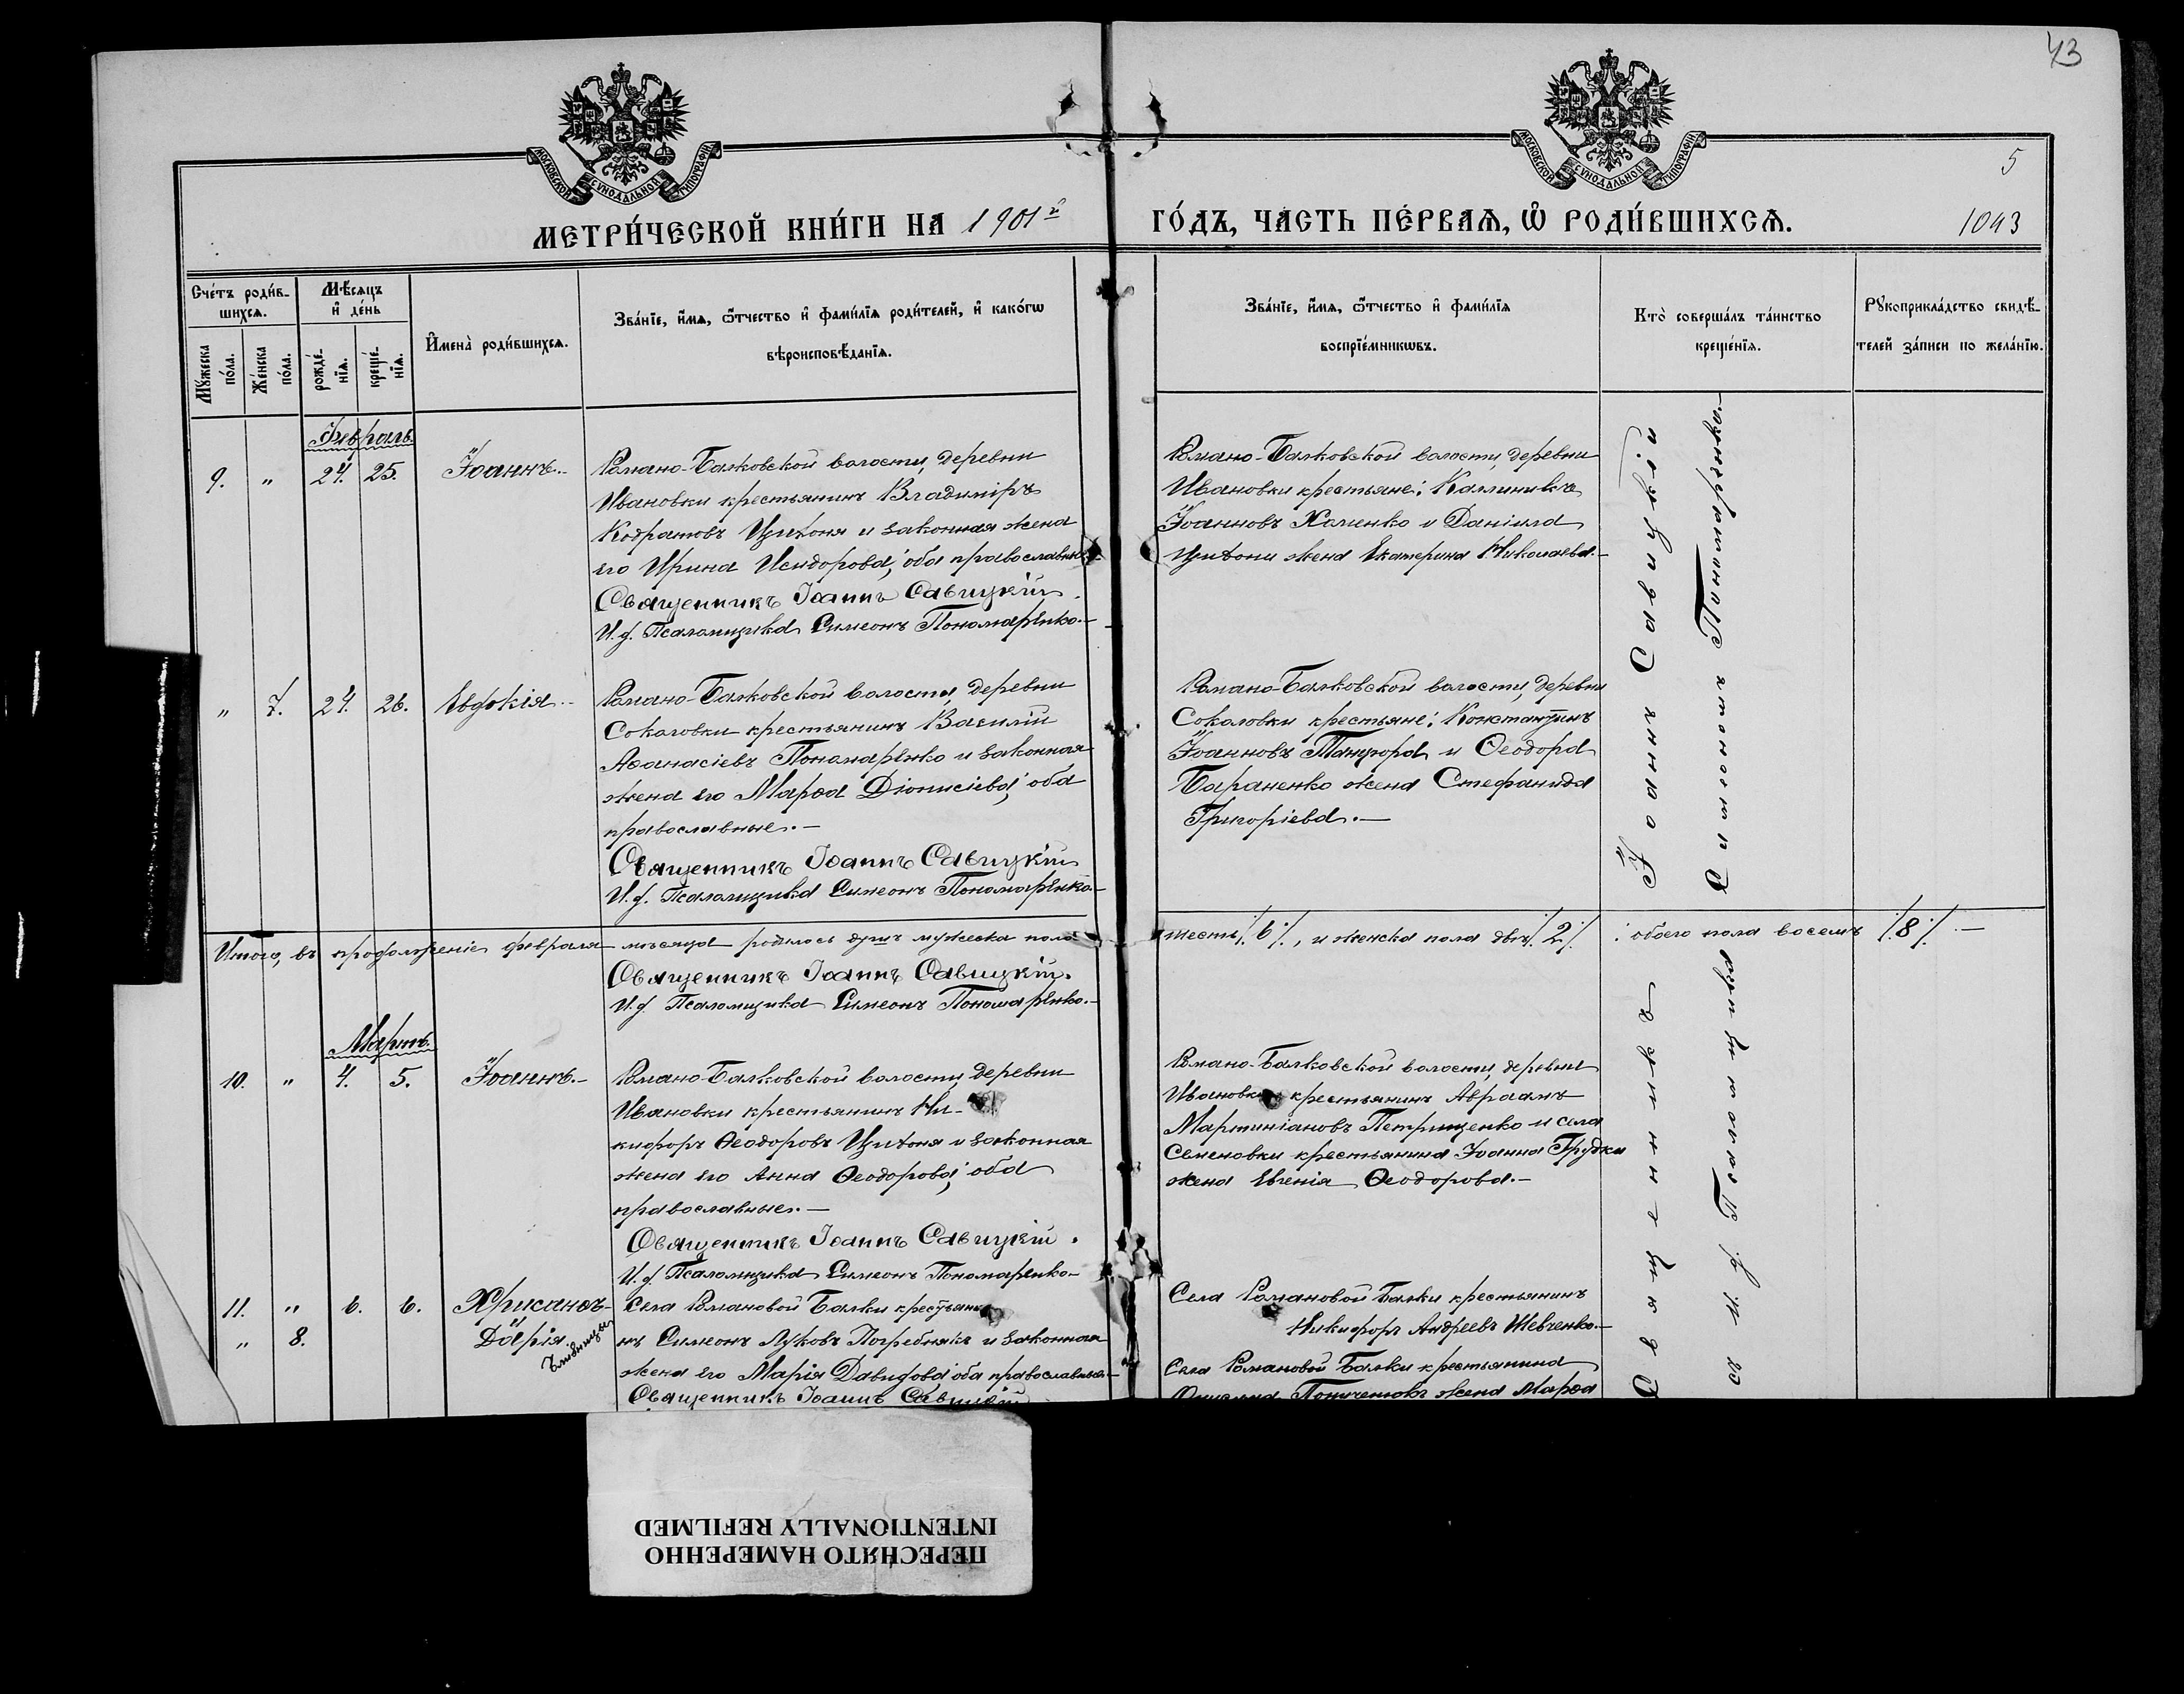 43
МОСКОВСКОЙ СѴНОДАЛЬНОЙ ТИПОГРАФІИ
МОСКОВСКОЙ СѴНОДАЛЬНОЙ ТИПОГРАФІИ
5
МЕТРИ́ЧЕСКОЙ КНИ́ГИ НА 1901й ГО́ДЪ, ЧА́СТЬ ПЕ́РВАѦ, Ѽ РОДИ́ВШИХСѦ.
1043
Сче́тъ роди́в-
шихсѧ.
Мꙋ́жеска по́ла.
Же́нска по́ла.
Мѣ́сѧцъ
и҆ де́нь
рожде́-
нїѧ.
креще́-
нїѧ.
И҆мена̀ роди́вшихсѧ.
Зва́нїе, и҆́мѧ, ѻ҆́тчество и҆ фами́лїѧ роди́телей, и҆ како́гѡ
вѣроисповѣ́данїѧ.
Зва́нїе, и҆́мѧ, ѻ҆́тчество и҆ фами́лїѧ
воспрїе́мникѡвъ.
Кто̀ соверша́лъ та́инство
креще́нїѧ.
Рꙋкоприкла́дство свидѣ́-
телей за́писи по жела́нїю.
Февраль.
9. " 24. 25. Іоаннъ.-
Романо-Балковской волости, деревни
Ивановки крестьянинъ Владиміръ
Кодратовъ Цитоня и законная жена
его Ирина Исидорова, оба православные
Священникъ Іоаннъ Савицкій.
И. д. Псаломщика Симеонъ Пономаренко.-
Романо-Балковской волости, деревни
Ивановки крестьяне: Каллиникъ
Іоанновъ Хоменко и Даніила
Цитони жена Екатерина Николаева.-
" 7. 24. 26. Евдокія.-
Романо-Балковской волости, деревни
Соколовки крестьянинъ Василій
Аѳанасіевъ Пономаренко и законная
жена его Марѳа Діонисіева, оба
православные.-
Священникъ Іоаннъ Савицкій
И. д. Псаломщика Симеонъ Пономаренко-
Романо-Балковской волости, деревни
Соколовки крестьяне: Константинъ
Іоанновъ и Ѳеодора
Бараненко жена Стефанида
Григоріева.-
Итого, въ продолженіе февраля мѣсяца родилось душъ мужеска пола шесть /6/, и женска пола двѣ /2/ обоего пола восемь /8/.-
Священникъ Іоаннъ Савицкій.
И. д. Псаломщика Симеонъ Пономаренко.-
Мартъ.
10. " 4. 5. Іоаннъ.-
Романо-Балковской волости, деревни
Ивановки крестьянинъ Ни-
кифоръ Ѳеодоровъ Цитоня и законная
жена его Анна Ѳеодорова, оба
православные.-
Священникъ Іоаннъ Савицкій.
И. д. Псаломщика Симеонъ Пономаренко-
Романо-Балковской волости, деревни
Ивановки крестьянинъ Авраамъ
Мартиніановъ Петрищенко и села
Семеновки крестьянина Іоанна Грудки
жена Евгенія Ѳеодорова.-
11. " 6. 6. Хрисанѳъ-
" 8. Дарія близнецы
Села Романовой Балки крестьяни-
нъ Симеонъ Луковъ Погребнякъ и законная
жена его Марія Давидова оба православные-
Священникъ Іоаннъ Савицкій
Села Романовой Балки крестьянинъ
Никифоръ Андреевъ Шевченко.-
Села Романовой Балки крестьянина
жена Марѳа
Священникъ Іоаннъ Савицкій
и И. д. Псаломщика Симеонъ Пономаренко.-
ПЕРЕСНЯТО НАМЕРЕННО
INTENTIONALLY REFILMED